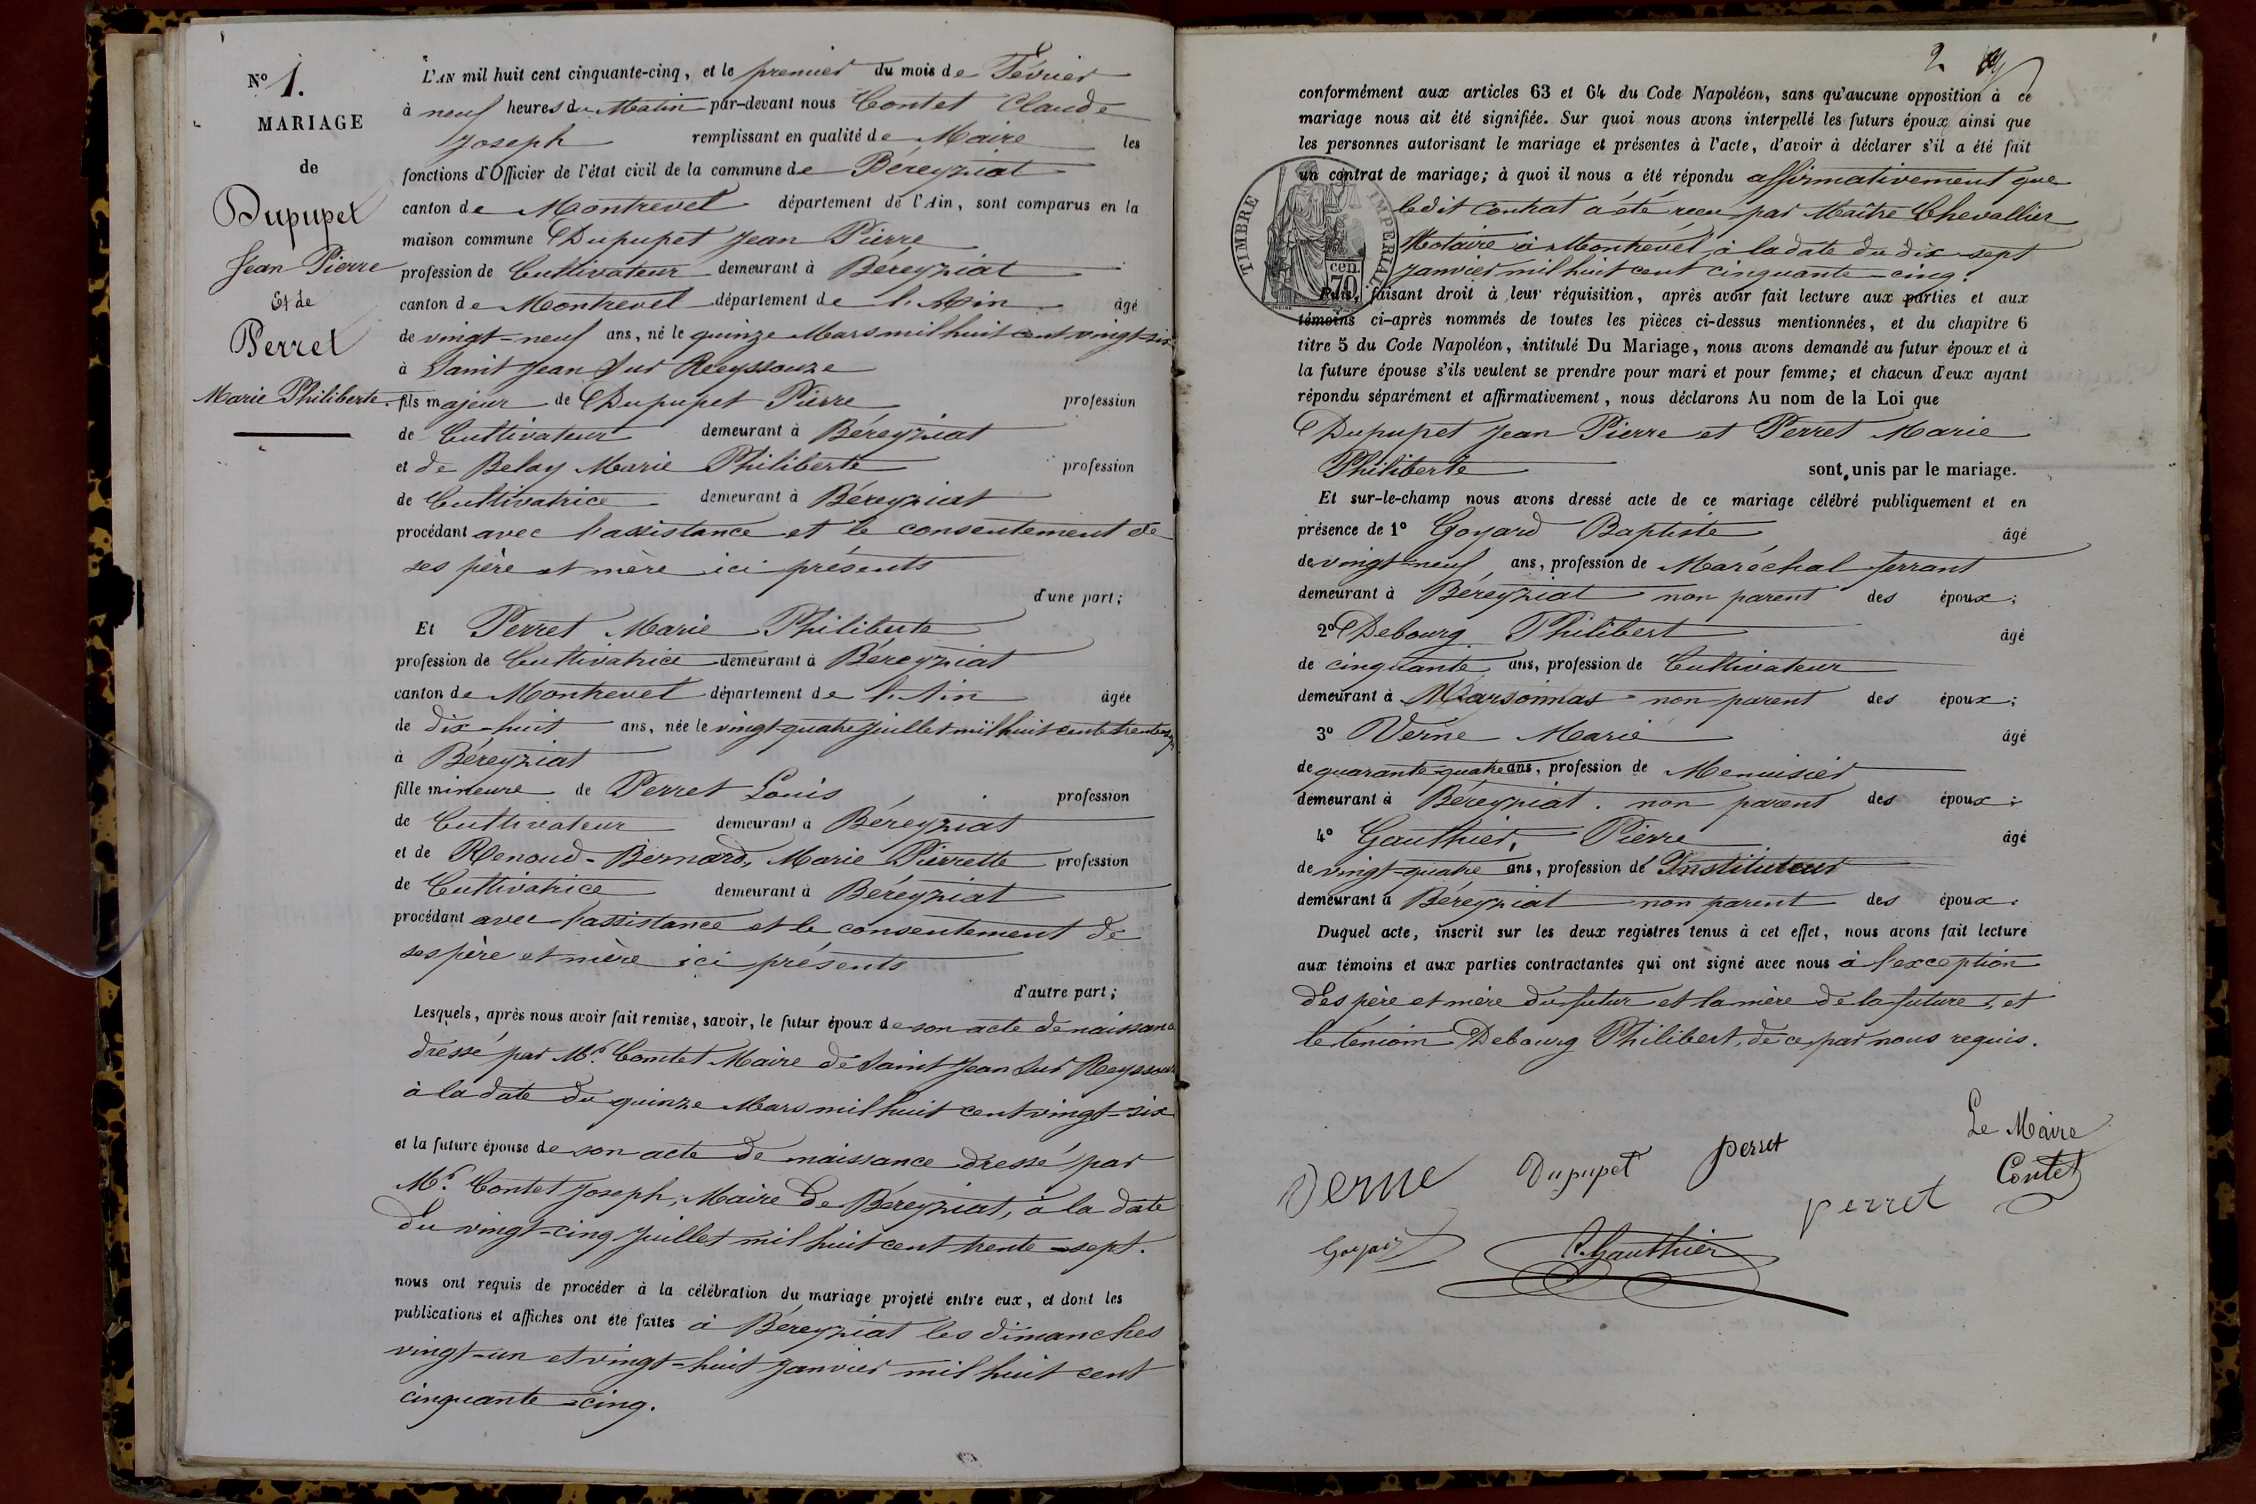 N° 1.
MARIAGE
de
Dupupet
Jean Pierre
Et de
Perret
Marie Philiberte.
L'AN mil huit cent cinquante-cinq, et le premier du mois de Février
à neuf heures du Matin par-devant nous Contet Claude
Joseph remplissant en qualité de Maire les
fonctions d'Officier de l'état civil de la commune de Béreyziat
canton de Montrevel département de l'Ain, sont comparus en la
maison commune Dupupet Jean Pierre
profession de Cultivateur demeurant à Béreyziat
canton de Montrevel département de l'Ain âgé
de vingt-neuf ans, né le quinze Mars mil huit cent vingt-six
à Saint Jean Sur Reyssouze
fils majeur de Dupupet Pierre profession
de Cultivateur demeurant à Béreyziat
et de Belay Marie Philiberte profession
de Cultivatrice demeurant à Béreyziat
procédant avec l'assistance et le consentement de
ses père et mère ici présents
d'une part;
Et Perret Marie Philiberte
profession de Cultivatrice demeurant à Béreyziat
canton de Montrevel département de l'Ain âgée
de dix-huit ans, née le vingt-quatre Juillet mil huit cent trente
à Béreyziat
fille mineure de Perret Louis profession
de Cultivateur demeurant à Béreyziat
et de Renoud-Bernard, Marie Pierrette profession
de Cultivatrice demeurant à Béreyziat
procédant avec l'assistance et le consentement de
ses père et mère ici présents
d'autre part;
Lesquels, après nous avoir fait remise, savoir, le futur époux de son acte de naissance
dressé par Mr. Comtet Maire de Saint Jean Sur Reyssouze
à la date du quinze Mars mil huit cent vingt-six
et la future épouse de son acte de naissance dressé par
Mr. Contet Joseph, Maire de Béreyziat, à la date
du vingt-cinq Juillet mil huit cent trente-sept.
nous ont requis de procéder à la célébration du mariage projeté entre eux, et dont les
publications et affiches ont été faites à Béreyziat les dimanches
vingt-un et vingt-huit Janvier mil huit cent
cinquante-cinq.
2
conformément aux articles 63 et 64 du Code Napoléon, sans qu'aucune opposition à ce
mariage nous ait été signifiée. Sur quoi nous avons interpellé les futurs époux ainsi que
les personnes autorisant le mariage et présentes à l'acte, d'avoir à déclarer s'il a été fait
un contrat de mariage; à quoi il nous a été répondu affirmativement que
ledit Contrat a été reçu par Maître Chevallier
Notaire à Montrevel, à la date du dix-sept
Janvier mil huit cent cinquante-cinq.
TIMBRE IMPERIAL
70 cen.
Puis, faisant droit à leur réquisition, après avoir fait lecture aux parties et aux
témoins ci-après nommés de toutes les pièces ci-dessus mentionnées, et du chapitre 6
titre 5 du Code Napoléon, intitulé Du Mariage, nous avons demandé au futur époux et à
la future épouse s'ils veulent se prendre pour mari et pour femme; et chacun d'eux ayant
répondu séparément et affirmativement, nous déclarons Au nom de la Loi que
Dupupet Jean Pierre et Perret Marie
Philiberte sont unis par le mariage.
Et sur-le-champ nous avons dressé acte de ce mariage célébré publiquement et en
présence de 1° Goyard Baptiste âgé
de vingt-neuf ans, profession de Maréchal ferrant
demeurant à Béreyziat non parent des époux;
2° Debourg Philibert âgé
de cinquante ans, profession de Cultivateur
demeurant à Marsonnas non parent des époux;
3° Verne Marie âgé
de quarante-quatre ans, profession de Menuisier
demeurant à Béreyziat. non parent des époux;
4° Gauthier, Pierre âgé
de vingt-quatre ans, profession de Instituteur
demeurant à Béreyziat non parent des époux.
Duquel acte, inscrit sur les deux registres tenus à cet effet, nous avons fait lecture
aux témoins et aux parties contractantes qui ont signé avec nous à l'exception
des père et mère du futur et la mère de la future, et
le témoin Debourg Philibert, de ce par nous requis.
Le Maire
Contet
Verne Dupupet perret
perret
Goyard P. Gauthier